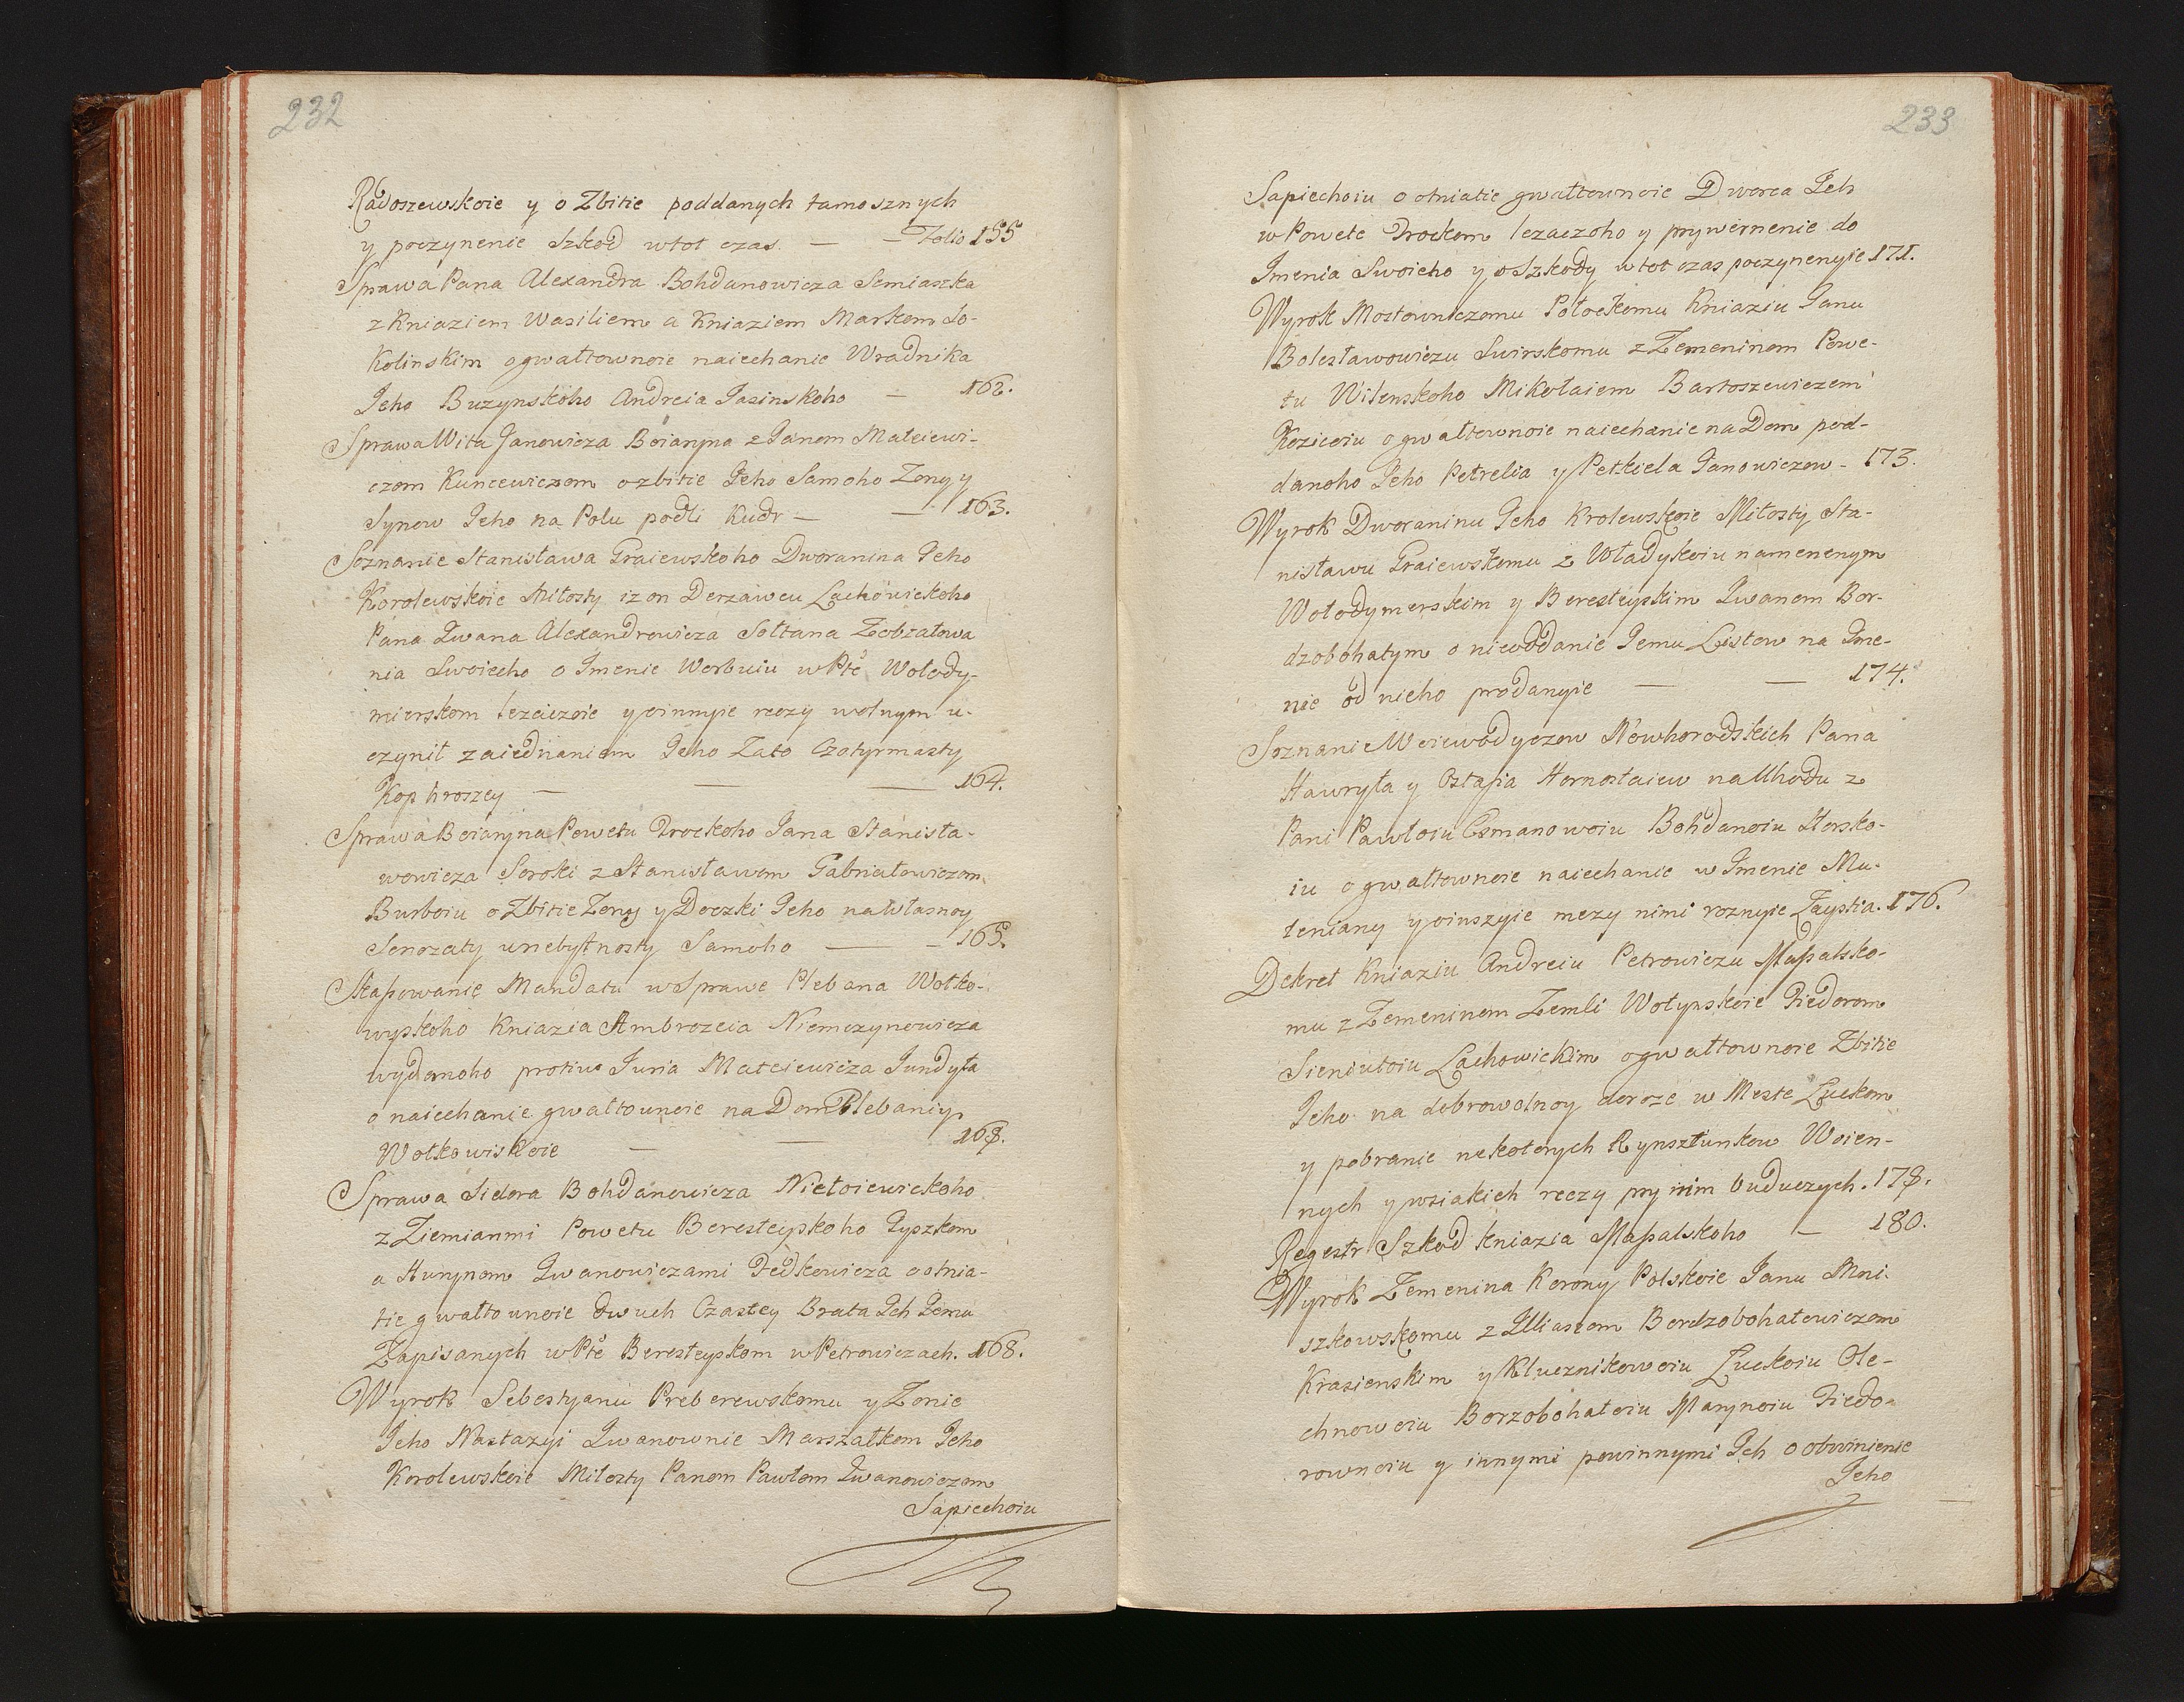 232
Radoszewskoie y o Zbitie poddanych tamosznych
y poczynenie Szkod wtot czas. — — Folio 155
Sprawa Pana Alexandra Bohdanowicza Semiaszka
z Kniaziem Wasiliem a Kniaziem Markom So-
kolinskim ogwałtownoie naiechanie Wradnika
Jeho Buzynskoho Andreia Jasinskoho — 162.
Sprawa Wita Janowicza Boiaryna z Janom Mateiewi-
czom Kuncewiczom ozbitie Jeho Samoho Zony y
Synow Jeho na Polu podli Kudr — — 163.
Soznanie Stanisława Graiewskoho Dworanina Jeho
Korolewskoie Miłosty iz on Derzawcu Lachowickoho
Pana Iwana Alexandrowicza Sołtana Z obzałowa
nia Swoiecho o Imenie Werbuiu w Pte Wołody-
mierskom lezaczoie y oinnyie reczy wolnym u-
czynił zaiednaniem Jeho Zato Czotyrmasty
Kop hroszey — — — 164.
Sprawa Boiaryna Powetu Trockoho Jana Stanisła-
wowicza Soroki z Stanisławom Gabriałowiczom
Burboiu o Zbitie Zony y Doczki Jeho na Własnoy
Senozaty unebytnosty Samoho — — 165.
Skasowanie Mandatu w Sprawe Plebana Wołko-
wyskoho Kniazia Ambrozeia Niemczynowicza
wydanoho protiw Juria Mateiewicza Jundyła
o naiechanie gwałtownoie na Dom Plebaniy
Wołkowiskoie — — 168.
Sprawa Sidora Bohdanowicza Nietoiewickoho
z Ziemianmi Powetu Beresteyskoho Hyszkom
a Hurynom Iwanowiczami Fedkowicza o otnia-
tie gwałtownoie dwuch Czastey Brata Ich Jemu
Zapisanych w Pte Beresteyskom w Petrowiczach. 168.
Wyrok Sebestyanu Preberewskomu y Zonie
Jeho Nastazyi Iwanownie Marszałkom Jeho
Korolewskoie Miłosty Panom Pawłom Iwanowiczom
Sapiechoiu
233
Sapiechoiu o otniatie gwałtownoie Dworca Ich
w Powete Trockom lezaczoho y prywernenie do
Imenia Swoieho y o Szkody wtot czas poczynenyie 171.
Wyrok Mostowniczomu Połockomu Kniaziu Janu
Bolesławowiczu Swirskomu z Zemeninom Powe-
tu Wilenskoho Mikołaiem Bartoszewiczem
Koziceiu ogwałtownoie naiechanie na Dom pod-
danoho Jeho Petrelia y Petkiela Janowiczow - 173.
Wyrok Dworaninu Jeho Krolewskoie Miłosty Sta-
nisławu Graiewskomu z Władykoiu namenenym
Wołodymerskim y Beresteyskim Iwanom Bor-
dzobohatym o nieoddanie Jemu Listow na Ime-
nie od nieho prodanyie — — 174.
Soznanie Woiewodyczow Nowhorodskich Pana
Hawryła y Ostafia Hornostaiew na Uhodu z
Pani Pawłoiu Esmanowoiu Bohdanoiu Horsko-
iu ogwałtownoie naiechanie w Imenie Mu-
teniany y oinszyie mezy nimi roznyie Zaystia. 176.
Dekret Kniaziu Andreiu Petrowiczu Masalsko-
mu z Zemeninem Zemli Wołynskoie Fiedorom
Sieniutoiu Lachowickim ogwałtownoie Zbitie
Jeho na dobrowolnoy doroze w Meste Łuckom
y pobranie nekotorych Rynsztunkow Woien-
nych y wsiakich reczy pry nim buduczych. 178.
Regestr Szkod kniazia Masalskoho — 180.
Wyrok Zemenina Korony Polskoie Janu Mni-
szkowskomu z Iliaszom Bordzobohatowiczom
Krasienskim y Kluceznikowoiu Łuckoiu Ole-
chnowoiu Borzobohatoiu Marynoiu Fiedo-
rownoiu y innymi powinnymi Ich o obwinienie
Jeho